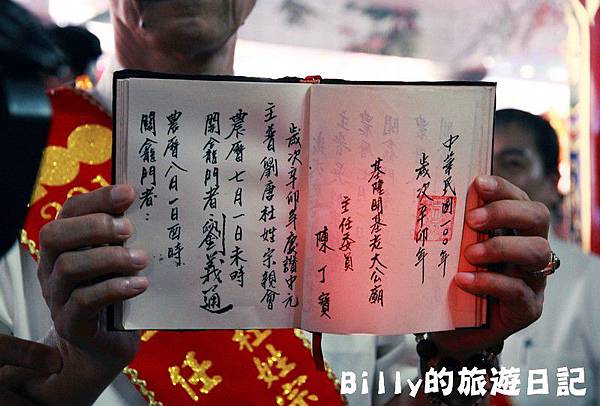 中華民國一〇〇年
歲次辛卯年
基隆開基老大公廟
主任委員
陳丁寶
歲次辛卯年慶讚中元
主普劉唐杜姓宗親會
農曆七月一日未時
開龕門者劉義通
農曆八月一日酉時
關龕門者：
任
杜姓宗
Billy的旅遊日記